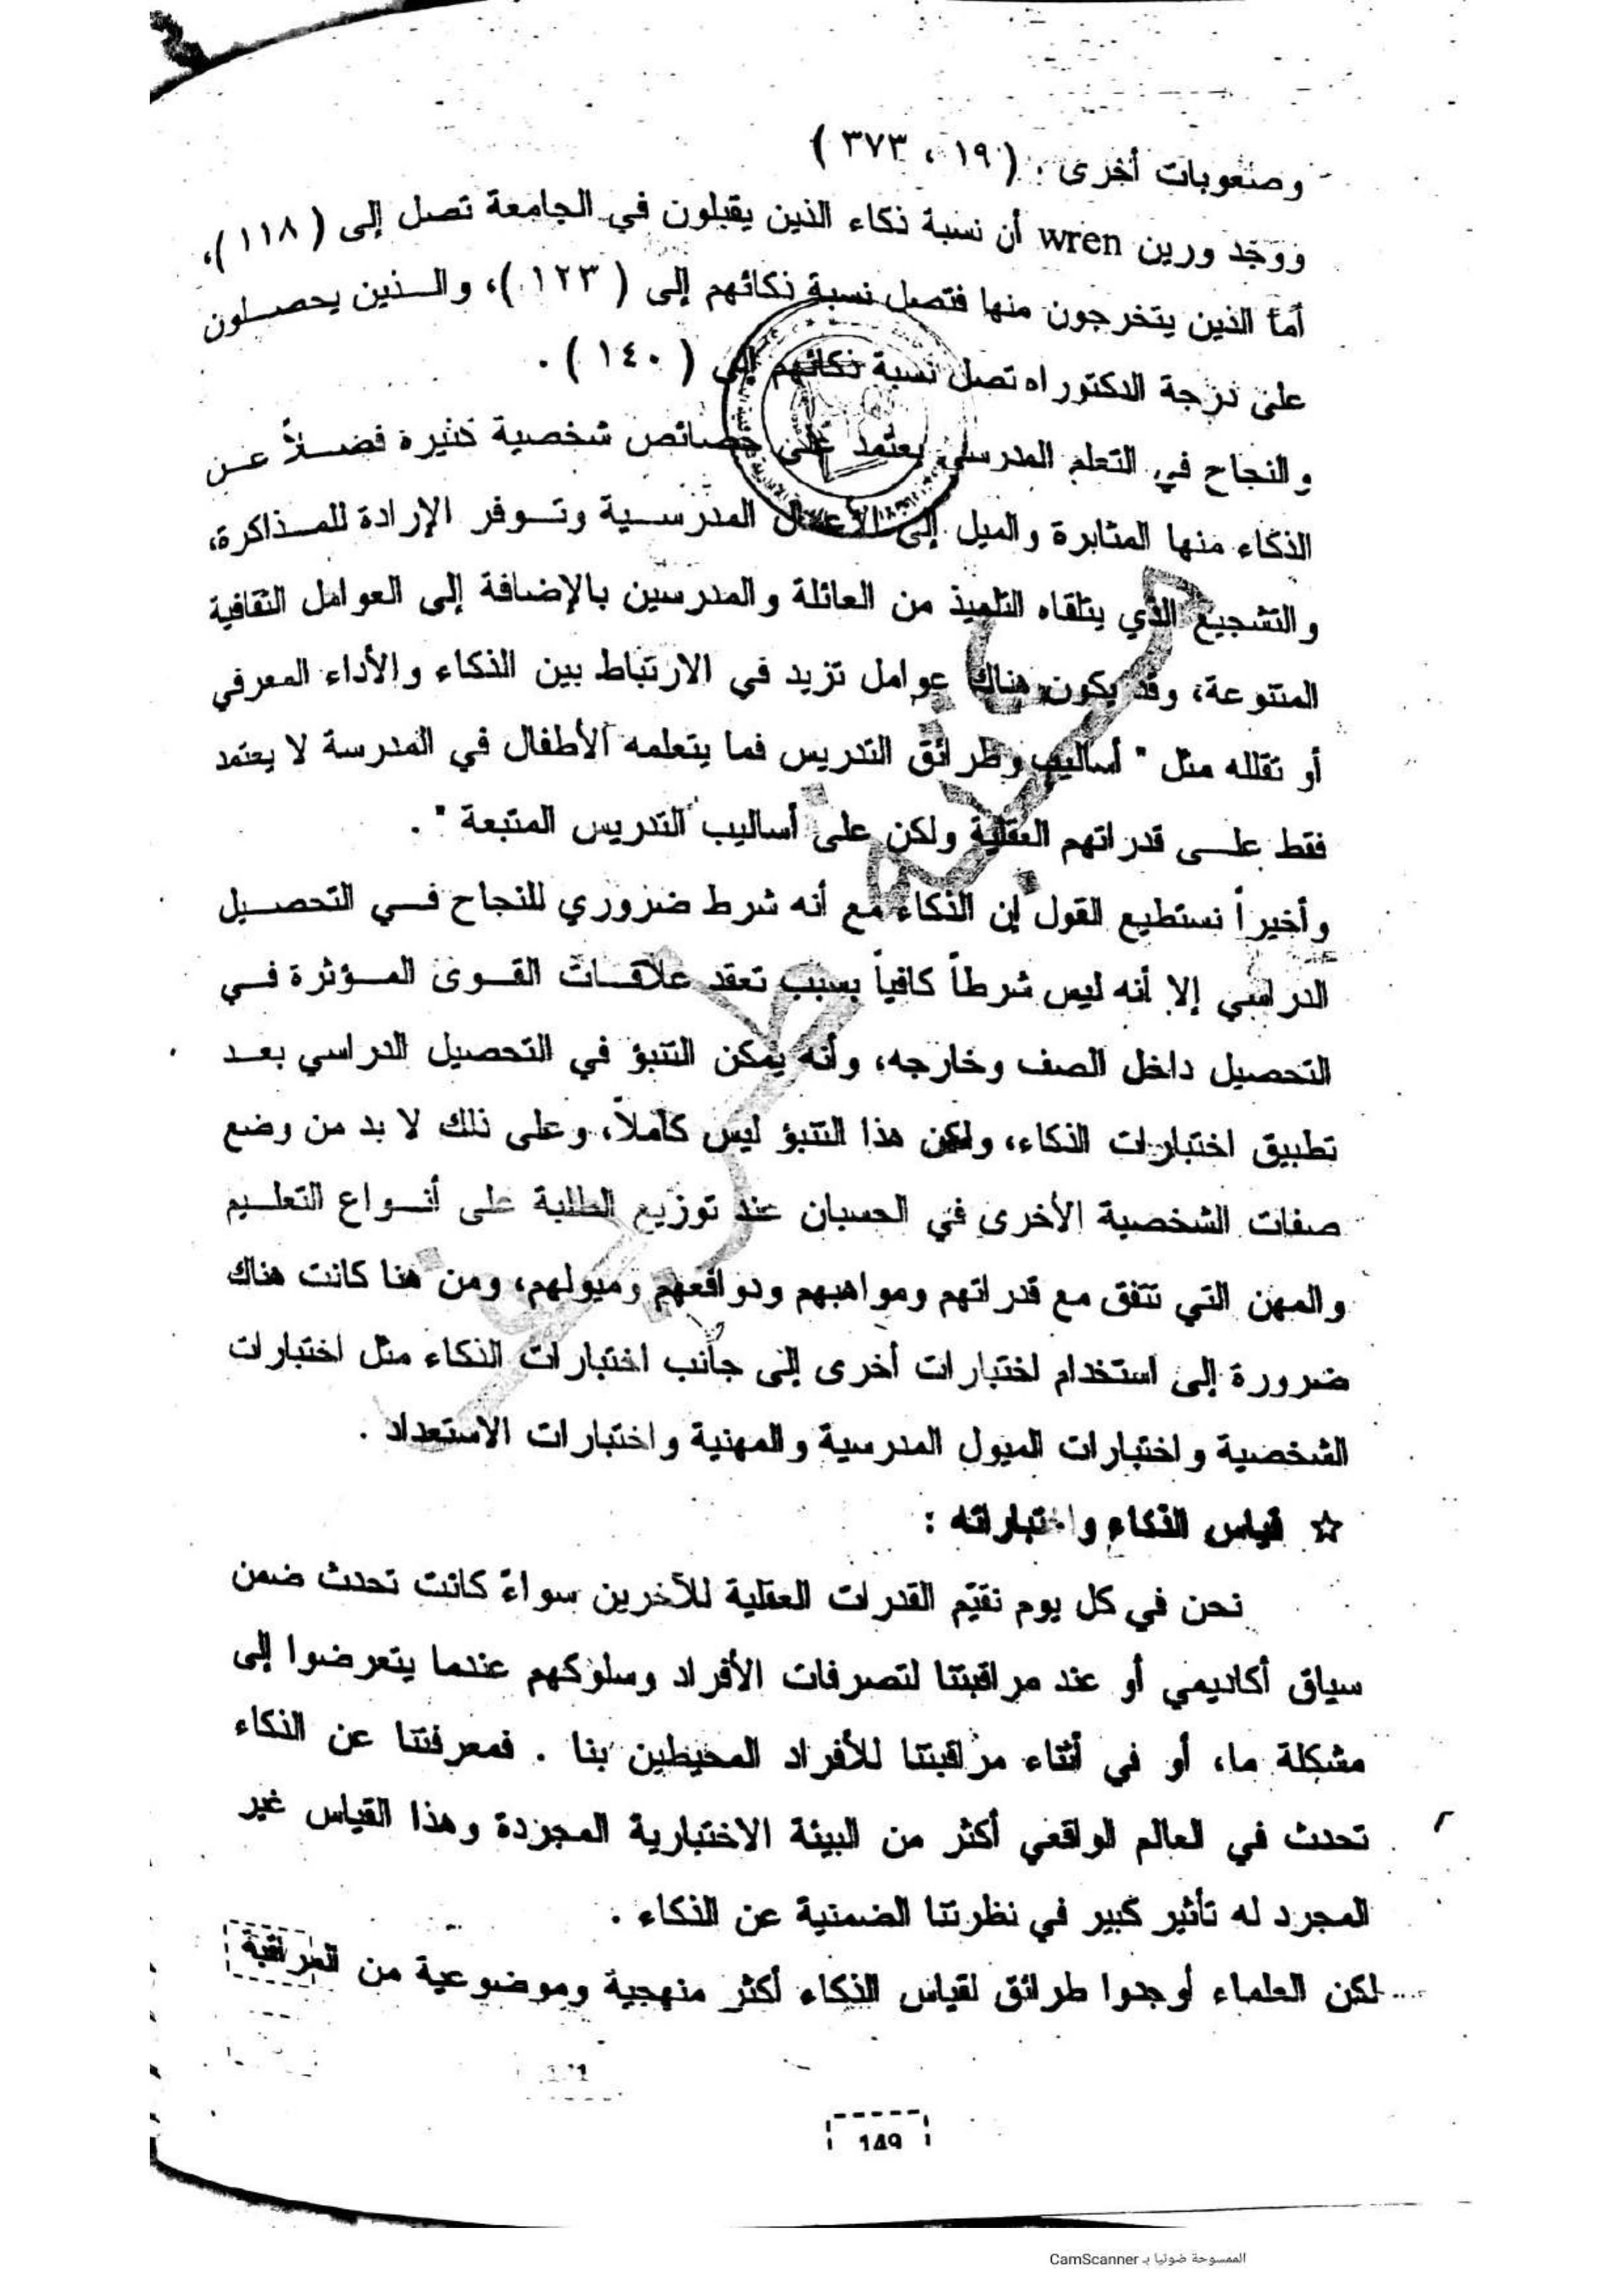 وصعوبات أخرى . ( ١٩ ، ٣٧٣ )
ووجد ورين wren أن نسبة ذكاء الذين يقبلون في الجامعة تصل إلى ( ١١٨ )،
أما الذين يتخرجون منها فتصل نسبة ذكائهم إلى ( ١٢٣ )، والذين يحصلون
على درجة الدكتوراه تصل نسبة ذكائهم إلى ( ١٤٠ ) .
والنجاح في التعلم المدرسي يعتمد على خصائص شخصية كثيرة فضلاً عن
الذكاء منها المثابرة والميل إلى الأعمال المدرسية وتوفر الإرادة للمذاكرة،
والتشجيع الذي يتلقاه التلميذ من العائلة والمدرسين بالإضافة إلى العوامل الثقافية
المتنوعة، وقد يكون هناك عوامل تزيد في الارتباط بين الذكاء والأداء المعرفي
أو تقلله مثل " أساليب وطرائق التدريس فما يتعلمه الأطفال في المدرسة لا يعتمد
فقط على قدراتهم العقلية ولكن على أساليب التدريس المتبعة " .
وأخيراً نستطيع القول إن الذكاء مع أنه شرط ضروري للنجاح في التحصيل
الدراسي إلا أنه ليس شرطاً كافياً بسبب تعقد علاقات القوى المؤثرة في
التحصيل داخل الصف وخارجه، وأنه يمكن التنبؤ في التحصيل الدراسي بعد
تطبيق اختبارات الذكاء، ولكن هذا التنبؤ ليس كاملاً، وعلى ذلك لا بد من وضع
صفات الشخصية الأخرى في الحسبان عند توزيع الطلبة على أنواع التعليم
والمهن التي تتفق مع قدراتهم ومواهبهم ودوافعهم وميولهم، ومن هنا كانت هناك
ضرورة إلى استخدام اختبارات أخرى إلى جانب اختبارات الذكاء مثل اختبارات
الشخصية واختبارات الميول المدرسية والمهنية واختبارات الاستعداد .
☆ قياس الذكاء واختباراته :
نحن في كل يوم نقيّم القدرات العقلية للآخرين سواءً كانت تحدث ضمن
سياق أكاديمي أو عند مراقبتنا لتصرفات الأفراد وسلوكهم عندما يتعرضوا إلى
مشكلة ما، أو في أثناء مراقبتنا للأفراد المحيطين بنا . فمعرفتنا عن الذكاء
تحدث في العالم الواقعي أكثر من البيئة الاختبارية المجردة وهذا القياس غير
المجرد له تأثير كبير في نظرتنا الضمنية عن الذكاء .
لكن العلماء أوجدوا طرائق لقياس الذكاء أكثر منهجية وموضوعية من المراقبة
149
الممسوحة ضوئيا بـ CamScanner